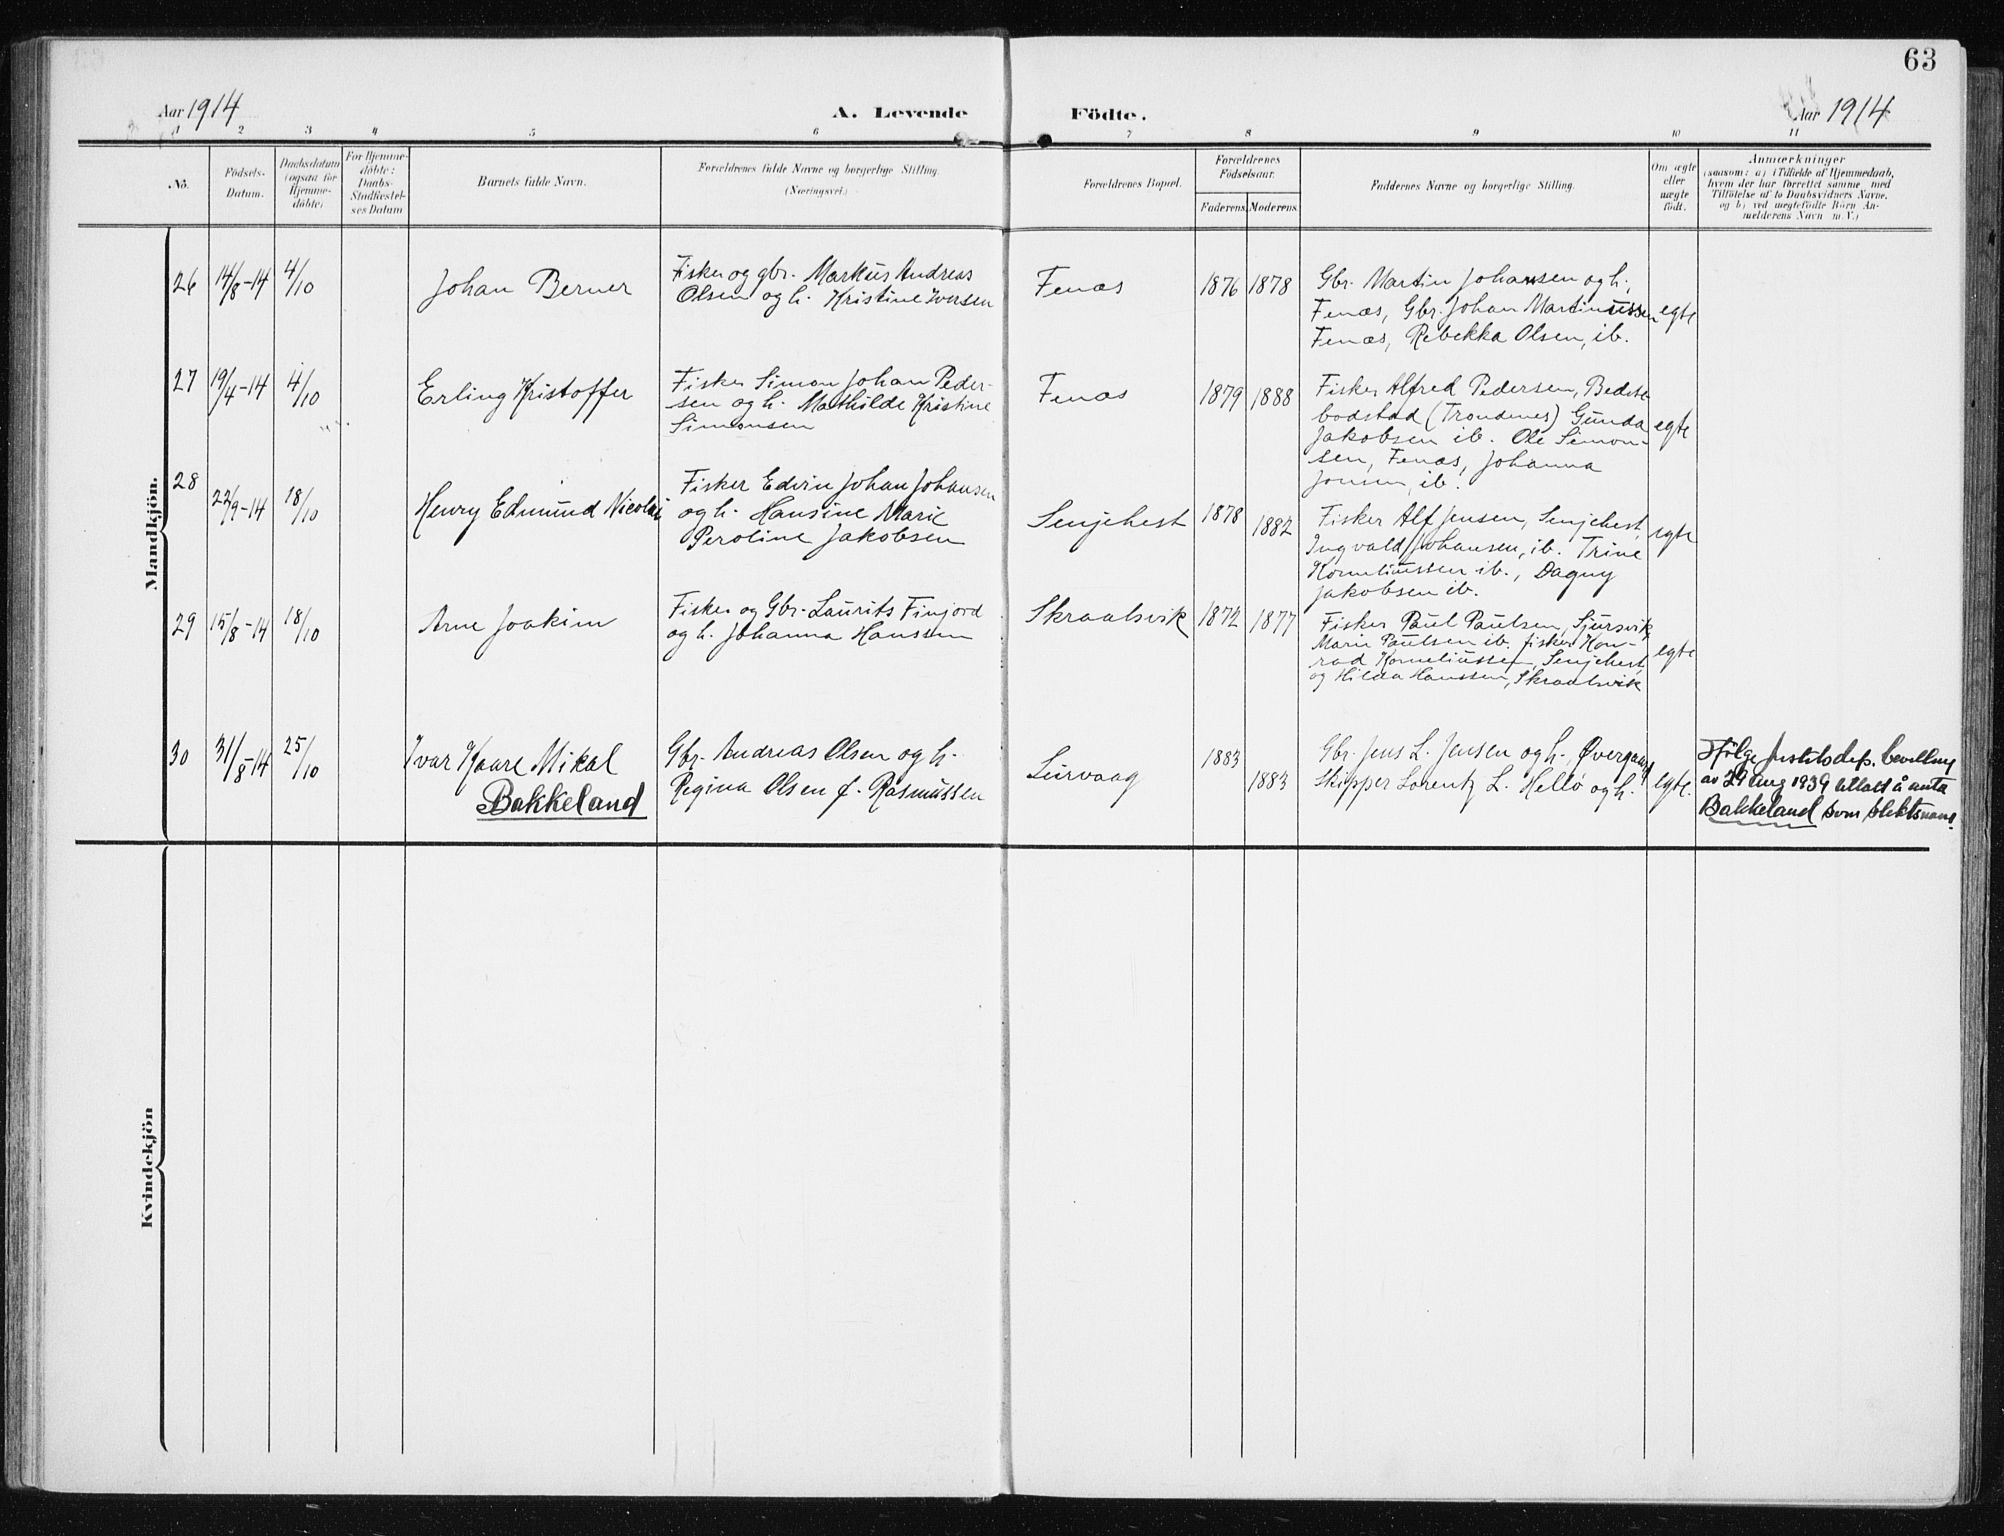 63
Aar 1914
A. Levende
Födte.
Aar 1914
1 2 3 4 5 6 7 8 9 10 11
No.
Födsels-
Datum.
Daabsdatum
(ogsaa for
Hjemme-
döbte)
For Hjemme-
döbte:
Daabs-
Stadfæstel-
ses Datum
Barnets fulde Navn.
Forældrenes fulde Navne og borgerlige Stilling.
(Næringsvei.)
Forældrenes Bopæl.
Forældrenes
Födselsaar.
Faderens. Moderens.
Faddernes Navne og borgerlige Stilling.
Om ægte
eller
uægte
födt.
Anmærkninger
(saasom: a) i Tilfælde af Hjemmedaab,
hvem der har forrettet samme, med
Tilföielse af to Daabsvidners Navne,
og b) ved uægtefödte Börn An-
melderens Navn m. V.)
Mandkjön.
26
14/8-14
4/10
Johan Berner
Fisker og gbr. Markus Andreas
Olsen og h. Kristine Iversen
Fenæs
1876
1878
Gbr. Martin Johansen og h.,
Fenæs, Gbr. Johan Martinussen
Fenæs, Rebekka Olsen, ib.
egte
27
19/4-14
4/10
Erling Kristoffer
Fisker Simon Johan Peder-
sen og h. Mathilde Kristine
Simonsen
Fenæs
1879
1888
Fisker Alfred Pedersen,
(Trondenes) Gunda
Jakobsen ib. Ole Simon-
sen, Fenæs, Johanna
Jensen, ib.
egte
28
22/9-14
18/10
Henry Edmund Nicolai
Fisker Edvin Johan Johansen
og h. Hansine Marie
Peroline Jakobsen
Senjehest
1878
1882
Fisker Alf Jensen, Senjehest,
Ingvald Johansen, ib. Trine
Korneliussen ib., Dagny
Jakobsen ib.
egte
29
15/8-14
18/10
Arne Joakim
Fisker og Gbr. Laurits Finjord
og h. Johanna Hanssen
Skraalsvik
1872
1877
Fisker Paul Paulsen, Sjursvik,
Marie Paulsen ib. fisker Kon-
rad Korneliussen, Senjehest,
og Hilda Hanssen, Skraalsvik
egte
30
31/8-14
25/10
Ivar Kaare Mikal
Bakkeland
Gbr. Andreas Olsen og h.
Regina Olsen f. Rasmussen
Survaag
1883
1883
Gbr. Jens L. Jensen og h. Övergaard
Skipper Lorentz L. Hellø og h.
egte.
Ifölge Justitsdep. bevilling
av 29 aug 1939 tillatt å anta
Bakkeland som slektsnavn.
Kvindekjön